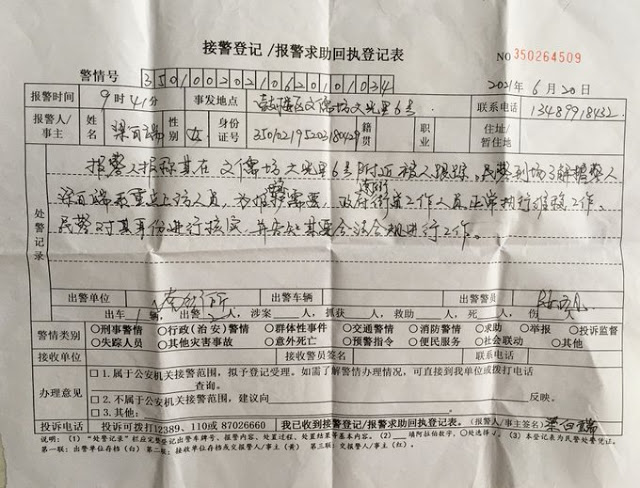 接警登记/报警求助回执登记表
NO 350264509
警情号 35010020210620101034 2021年6月20日
报警时间 9时41分 事发地点 鼓楼区文儒坊大光里6号 联系电话 13489918432
报警人/事主 姓名 梁百端 性别 女 身份证号 350102195203180429 籍贯 职业 住址/暂住地
处警记录
报警人报称其在文儒坊大光里6号附近被人跟踪,民警到场了解报警人
梁百端系重点上访人员,为维稳需要,政府街道工作人员正常执行维稳工作。
民警对其身份进行核实,并告知其要合法合规进行工作。
出警单位 南街所 出警车辆 出警警员
出车 辆,出警 人,涉案 人,抓获 人,救助 人,死 人,伤 人
警情类别 ○刑事警情 ○行政(治安)警情 ○群体性事件 ○交通警情 ○消防警情 ○求助 ○举报 ○投诉监督
○失踪人员 ○其他灾害事故 ○意外死亡 ○预警指令 ○便民服务 ○社会联动 ○其他
接收单位 接收警员签名 联系电话
办理意见
□1.属于公安机关接警范围,拟予登记受理。如需了解警情办理情况,可直接到我单位或拨打电话
查询。
□2.不属于公安机关接警范围,建议向 反映。
□3.其他:
投诉电话 投诉拨打12389、110或 87026660 我已收到接警登记/报警求助回执登记表。(报警人/事主签名) 梁百端
说明:(1)“处警记录”栏应完整登记出警车牌号、报警内容、处置过程、处置结果等基本内容。(2)__填阿拉伯数字,○处选择√。(3)本登记表为民警处警凭证。
第一联:出警单位存档(白) 第二联:接收单位存档或交报警人/事主(黄) 第三联:交报警人/事主(红)。